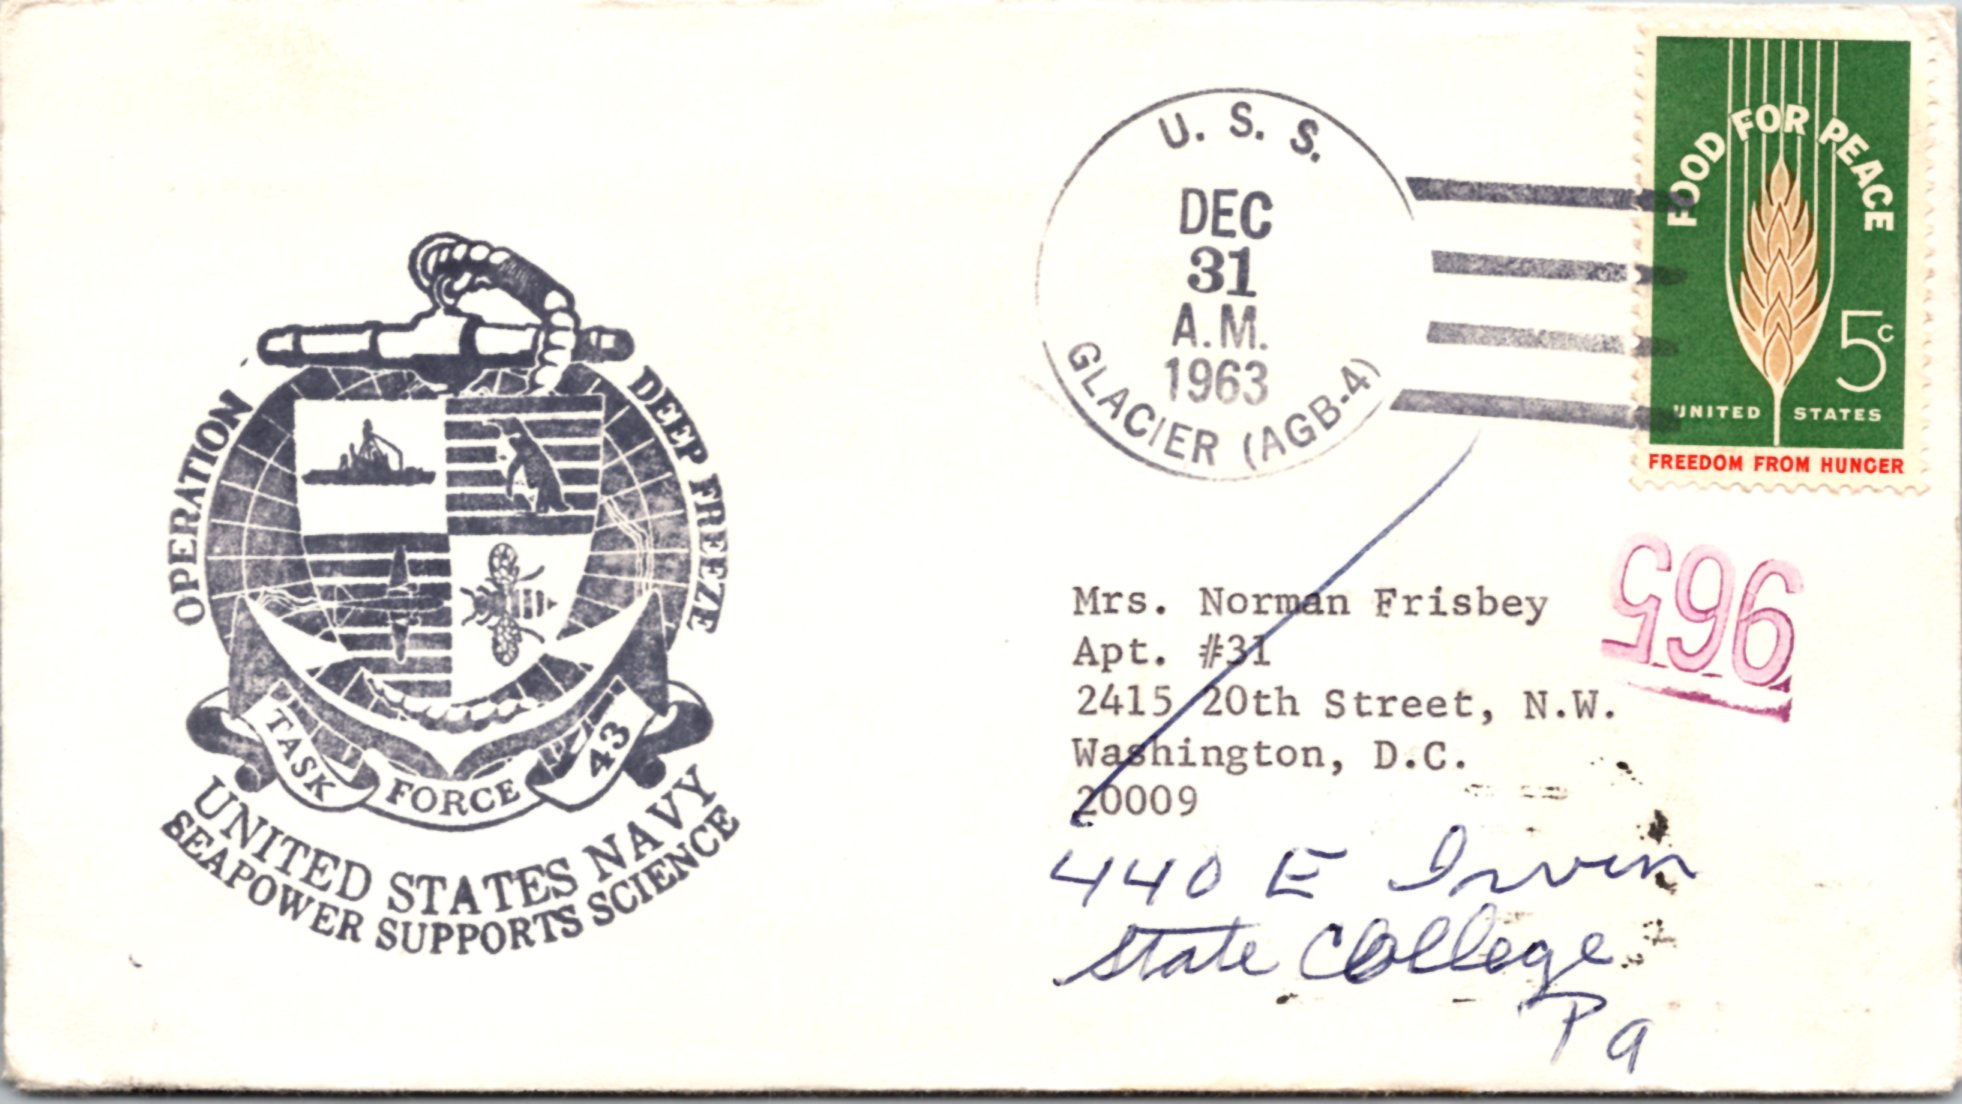 OPERATION DEEP FREEZE
TASK FORCE 43
UNITED STATES NAVY
SEAPOWER SUPPORTS SCIENCE
U. S. S.
DEC
31
A.M.
1963
GLACIER (AGB-4)
FOOD FOR PEACE
5c
UNITED STATES
FREEDOM FROM HUNGER
965
Mrs. Norman Frisbey
Apt. #31
2415 20th Street, N.W.
Washington, D.C.
20009
440 E Irvin
State College
Pa